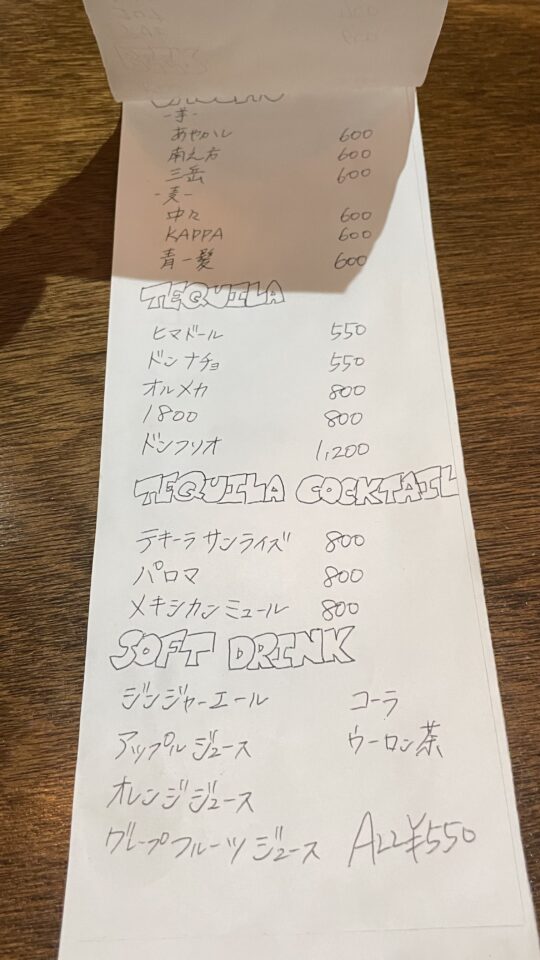 -芋-
あやかし 600
南え方 600
三岳 600
-麦-
中々 600
KAPPA 600
青一髪 600
TEQUILA
ヒマドール 550
ドンナチョ 550
オルメカ 800
1800 800
ドンフリオ 1,200
TEQUILA COCKTAIL
テキーラサンライズ 800
パロマ 800
メキシカンミュール 800
SOFT DRINK
ジンジャーエール コーラ
アップルジュース ウーロン茶
オレンジジュース
グレープフルーツジュース ALL¥550